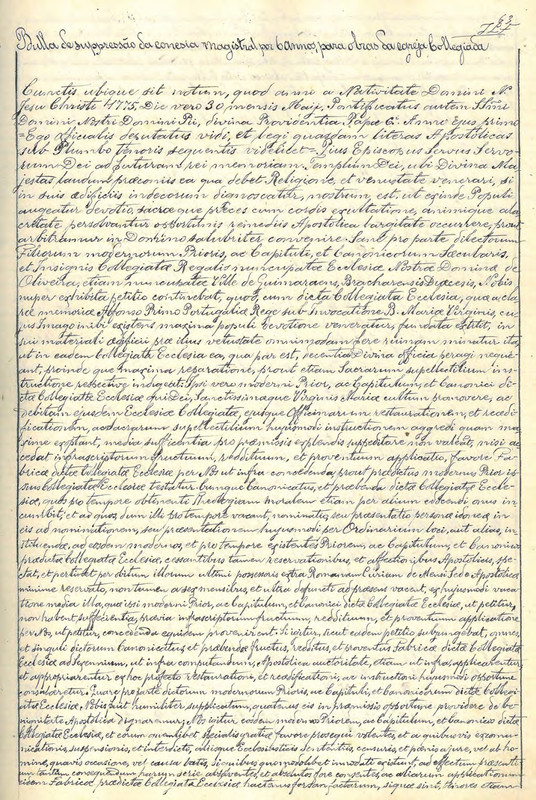 Bulla de suppressão da conesia magistral por 6 annos, para obras da egreja Collegiada
Cunctis ubique sit notum, quod anni a Nativitate Domini N.
Jesu Christi 1775, Die vero 30 mensis Maij, Pontificatus autem
Domini Nostri Domini Pii, divina Providentia Papæ anno ejus primo
Ego Officialis deputatus vidi, et legi quasdam literas Apostolicas
sub Plumbo tenoris sequentis videlicet = Pius Episcopus Servus Servo-
rum Dei ad futuram rei memoriam. Templum Dei, ubi Divina Ma-
jestas laudum præconiis ea qua debet Religione, et venustate venerari, si
in suis ædificiis indecorum dignoscatur, nostrum est, ut exinde Populi
augeatur devotio, sacræque præces cum cordis exultatione, animique ala-
critate persolvantur opportunis remediis Apostolica largitate occurrere, prout
arbitramur in Domino salubriter convenire. Sane pro parte dilectorum
Filiorum modernorum Prioris, ac Capituli, et Canonicorum Sæcularis,
et Insignis Collegiatæ Regalis nuncupatæ Ecclesiæ Nostræ Dominæ de
Oliveira, etiam nuncupatæ Villæ de Guimaraens, Bracharensis Diœcesis, Nobis
nuper exhibita petitio continebat, quod, cum dicta Collegiata Ecclesia, quæ a cla-
ræ memoriæ Afonso Primo Portugaliæ Rege sub Invocatione B. Mariæ Virginis, cu-
jus Imago inibi existens maxima populi devotione veneratur, fundata extitit, in
sui materiali ædificii præ illius vetustate omnimodam fere ruinam minatur ita,
ut in eadem Collegiata Ecclesia ea, qua par est, decentia Divina officia peragi neque-
ant, proinde que maxima reparatione, prout etiam Sacrarum supellectilium ins-
tructione respective indigeat. Ipsi vero moderni Prior, ac Capitulum, et Canonici di-
ctæ Collegiatæ Ecclesiæ qui Dei, Sanctissimæque Virginis Mariæ cultum promovere, ac
debitam ejusdem Ecclesiæ Collegiatæ, ejusque Officinarum restaurationem, et reædi-
ficationem, ac sacrarum supellectilium hujusmodi instructionem aggredi quam ma-
xime exoptant, media sufficientia pro præmissis explendis suppeditare non valent, nisi ac-
cedat infrascriptorum fructuum, redituum, et proventuum applicatio, favore Fa-
bricæ dictæ Collegiatæ Ecclesiæ per Nos ut infra concedenda, prout prædictus modernus Prior ip-
sius Collegiatæ Ecclesiæ testatur. Cumque Canonicatus, et præbenda dictæ Collegiatæ Eccle-
siæ, quos pro tempore obtinenti Theologiam moralem etiam per alium edocendi onus in-
cumbit, et ad quos, dum illi pro tempore vacant, nominatio, seu præsentatio personæ idoneæ in-
eis ad nominationem, seu præsentationem hujusmodi per Ordinarium loci, aut alias, in-
stituendæ, ad eosdem modernos, et pro tempore existentes Priorem, ac Capitulum, et Canonicos
prædictæ Collegiatæ Ecclesiæ, cessantibus tamen reservationibus, et affectionibus Apostolicis, spe-
ctat, et pertinet per obitum illorum ultimi possessoris extra Romanam Curiam de Mensi Sedi Apostolicæ
minime reservato, non tamen a sex mensibus, et ultra defuncti ad præsens vacent, ex hujusmodi vaca-
tione media illa, quæ ipsi moderni Prior, ac Capitulum, et Canonici dictæ Collegiatæ Ecclesiæ, ut petitur,
non habent sufficientia, prævia infrascriptorum fructuum, redituum, et proventuum applicatione
per Nos, ut petitur, concedenda equidem provenirent. Si igitur, sicut eadem petitio subjungebat, omnes,
et singuli dictorum Canonicatus, et præbendæ fructus, reditus, et proventus Fabricæ dictæ Collegiatæ
Ecclesiæ ad Sexennium, ut infra computandum, Apostolica autoritate, etiam ut infra applicarentur,
et appropriarentur ex hoc profecto restaurationi, et reædificationi, ac instructioni hujusmodi opportune
consuleretur. Quare pro parte dictorum modernorum Prioris, ac Capituli, et Canonicorum dictæ Collegi-
atæ Ecclesiæ, Nobis fuit humiliter supplicatum, quatenus eis in præmissis opportune providere de be-
nignitate Apostolica dignaremur. Nos igitur eosdem modernos Priorem, ac Capitulum, et Canonicos dictæ
Collegiatæ Ecclesiæ, et eorum quemlibet specialis gratiæ favore prosequi volentes, et a quibusvis excomu-
nicationis, suspensionis, et interdicti, aliisque Ecclesiasticis Sententiis, censuris, et pœnis a jure, vel ab ho-
mine, quavis occasione, vel causa latis, si quibus quomodolibet innodati existunt, ad effectum præsenti-
um tantum consequendum harum serie absolventes, et absolutos fore censentes, ac aliarum applicationum
eidem Fabricæ prædictæ Collegiatæ Ecclesiæ hactenus forsan factarum, siquæ sint,